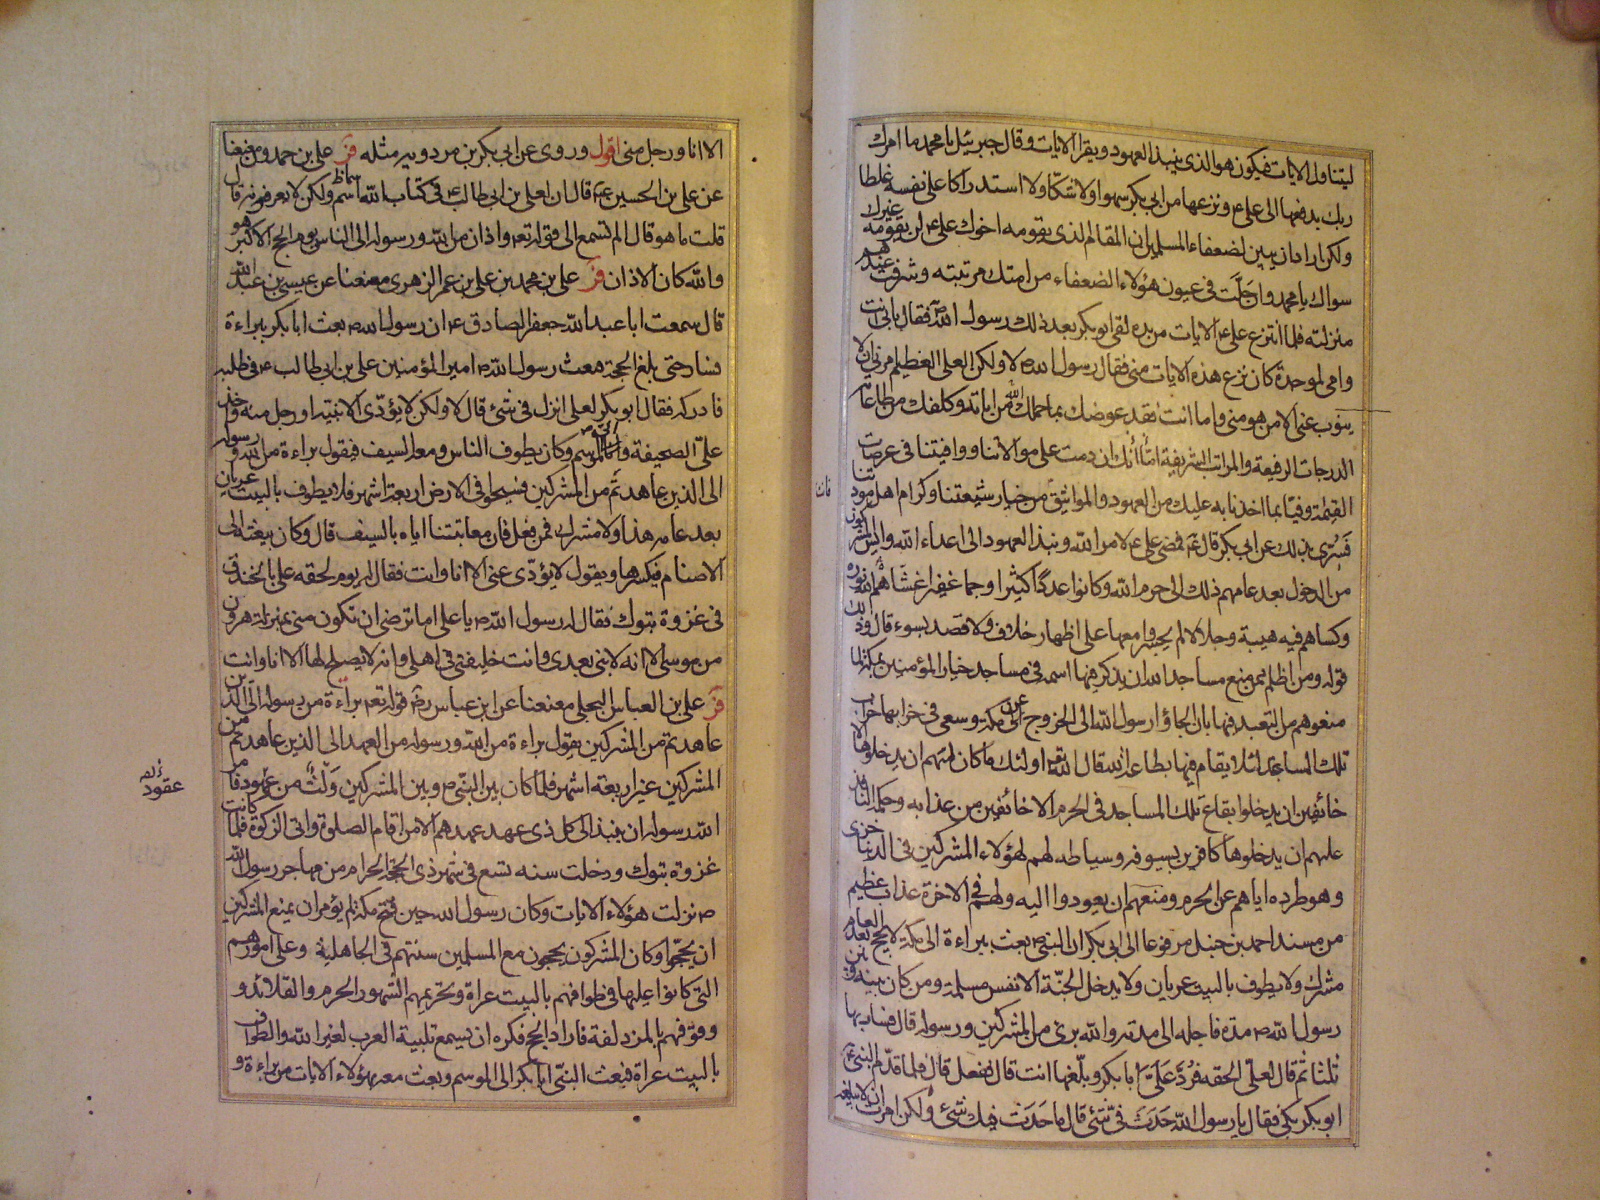 ليتناول الايات فيكون هو الذى ينبذ العهود ويقرا الايات وقال جبرئيل يا محمد ما امرك
ربك بدفعها الى على ع ونزعها من ابى بكر سهوا ولا شكا ولا استدراكا على نفسه غلطا
ولكن اراد ان يبين لضعفاء المسلمين ان المقام الذى يقومه اخوك على ع لن يقومه غيرك
سواك يا محمد وان جلت فى عيون هؤلاء الضعفاء من امتك مرتبته وشرفت عندهم
منزلته فلما انتزع على ع الايات من يده لقى ابو بكر بعد ذلك رسول الله ص فقال بابى انت
وامى لموجدة كان نزع هذه الايات منى فقال رسول الله ص لا ولكن العلى العظيم امرنى ان لا
ينوب عنى الا من هو منى واما انت فقد عوضك الله بما حملك من اياته وكلفك من طاعاته
الدرجات الرفيعة والمراتب الشريفة اما انك ان دمت على موالاتنا ووافيتنا فى عرصات
القيمة وفيا بما اخذنا به عليك من العهود والمواثيق من خيار شيعتنا وكرام اهل مودتنا
فسرى بذلك عن ابى بكر قال ثم فمضى على ع لامر الله ونبذ العهود الى اعداء الله وايس المشركون
من الدخول بعد عامهم ذلك الى حرم الله وكانوا عددا كثيرا وجما غفيرا غشاهم الله نوره
وكساهم فيه هيبة وجلالا لم يجسروا معها على اظهار خلاف ولا قصد بسوء قال وذلك
قوله ومن اظلم ممن منع مساجد الله ان يذكر فيها اسمه فى مساجد خيار المؤمنين بمكة لما
منعوهم من التعبد فيها بان الجاؤا رسول الله الى الخروج عن مكة وسعى فى خرابها خراب
تلك المساجد لئلا يقام فيها بطاعة الله قال الله تع اولئك ما كان لهم ان يدخلوها الا
خائفين ان يدخلوا بقاع تلك المساجد فى الحرم الا خائفين من عذابه وحكمه النافذ
عليهم ان يدخلوها كافرين بسيوفه وسياطه لهم لهؤلاء المشركين فى الدنيا خزى
وهو طرده اياهم عن الحرم ومنعهم ان يعودوا اليه ولهم فى الاخرة عذاب عظيم
من مسند احمد بن حنبل مرفوعا الى ابى بكر ان النبى ص بعث ببراءة الى مكة لا يحج بعد العام
مشرك ولا يطوف بالبيت عريان ولا يدخل الجنة الا نفس مسلمة ومن كان بينه وبين
رسول الله ص مدة فاجله الى مدته والله برئ من المشركين ورسوله قال فسار بها
ثلثا ثم قال لعلى الحقه فرد على ابا بكر وبلغها انت قال ففعل قال فلما قدم النبى ص
ابو بكر بكى فقال يا رسول الله حدث فى شئ قال ما حدث فيك شئ ولكن امرت ان لا يبلغه
الا انا ورجل منى اقول وروى عن ابى بكر بن مردويه مثله فر على بن حمدون معنعنا
عن على بن الحسين ع قال ان لعلى بن ابى طالب ع فى كتاب الله اسم ولكن لا يعرفونه قال
قلت ما هو قال الم تسمع الى قوله تع واذان من الله ورسوله الى الناس يوم الحج الاكبر هو
والله كان الاذان فر على بن محمد بن على بن عمر الزهرى معنعنا عن عيسى بن عبد الله
قال سمعت ابا عبد الله جعفر الصادق ع ان رسول الله ص بعث ابا بكر ببراءة
فسار حتى بلغ الجحفة فبعث رسول الله ص امير المؤمنين على بن ابى طالب ع فى طلبه
فادركه فقال ابو بكر لعلى انزل فى شئ قال لا ولكن لا يؤدى الا نبيه او رجل منه واخذ
على الصحيفة واتى الموسم وكان يطوف الناس ومعه السيف فيقول براءة من الله ورسوله
الى الذين عاهدتم من المشركين فسيحوا فى الارض اربعة اشهر فلا يطوف بالبيت عريان
بعد عامه هذا ولا مشرك فمن فعل فان معاتبتنا اياه بالسيف قال وكان يبعثه الى
الاصنام فيكسرها ويقول لا يؤدى عنى الا انا وانت فقال له يوم لحقه على بالخندق
فى غزوة تبوك فقال له رسول الله ص يا على اما ترضى ان تكون منى بمنزلة هرون
من موسى الا انه لا نبى بعدى وانت خليفتى فى اهلى وانه لا يصلح لها الا انا وانت
فر على بن العباس البجلى معنعنا عن ابن عباس رض قوله تع براءة من الله ورسوله الى الذين
عاهدتم من المشركين يقول براءة من الله ورسوله من العهد الى الذين عاهدتم من
المشركين غير اربعة اشهر فلما كان بين النبى ص وبين المشركين ولث من عهود فامر
الله رسوله ان ينبذ الى كل ذى عهد عهدهم الا من اقام الصلوة واتى الزكوة فلما كانت
غزوة تبوك ودخلت سنه تسع فى شهر ذى الحجة الحرام من مهاجر رسول الله
ص نزلت هؤلاء الايات وكان رسول الله حين فتح مكة لم يؤمر ان يمنع المشركين
ان يحجوا وكان المشركون يحجون مع المسلمين سنتهم فى الجاهلية وعلى امورهم
التى كانوا عليها فى طوافهم بالبيت عراة وتحريمهم الشهور الحرم والقلائد و
وقوفهم بالمزدلفة فاراد الحج فكره ان يسمع تلبية العرب لغير الله والطواف
بالبيت عراة فبعث النبى ابا بكر الى الموسم وبعث معه بهؤلاء الايات من براءة و
عقود